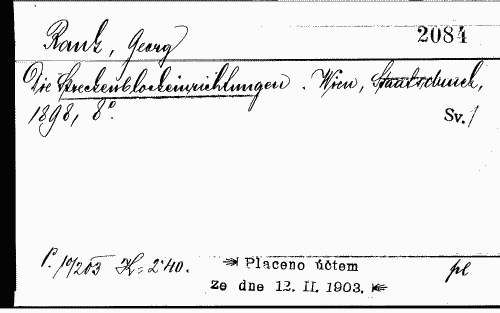 Rank, Georg 2084
Die Streckenblockeinrichtungen. Wien, Staatsdruck,
1898, 8°. Sv. 1
P. 10/203 K = 2·40. Placeno účtem pl
ze dne 12. II. 1903.